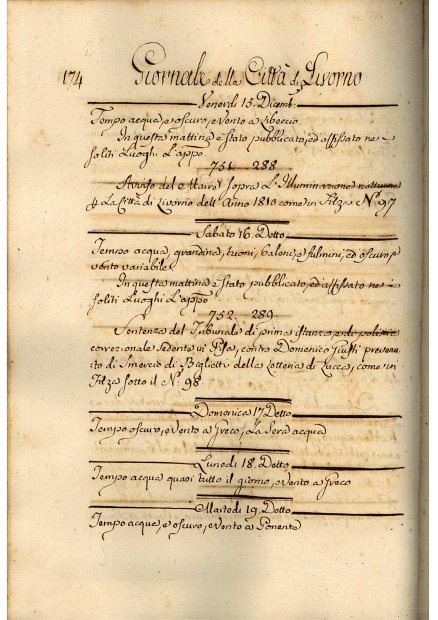 174 Giornale della Città di Livorno
Venerdi 15. Dicemb:
Tempo acqua, e oscuro, e vento a Libeccio
In questa mattina è stato pubblicato, ed affissato ne i
soliti Luoghi L'appo
751. 288
Avviso del Maire sopra L'Illuminazione notturna
della Città di Livorno dell'Anno 1810 come in Filza Nº 97
Sabato 16. Detto
Tempo acqua, grandina, tuoni, baleni, e fulmini, ed oscuro, e
vento variabile
In questa mattina è stato pubblicato, ed affissato ne i
soliti Luoghi L'appo
752. 289
Sentenza del Tribunale di prima istanza, e di polizia
correzionale sedente in Pisa, contro Domenico Giusti prevenu
to di smercio di Biglietti della Lotteria di Lucca, come in
Filza sotto il Nº 98
Domenica 17 Detto
Tempo oscuro, e vento a Greco, La Sera acqua
Lunedi 18. Detto
Tempo acqua quasi tutto il giorno, e vento a Greco
Martedi 19. Detto
Tempo acqua, e oscuro, e vento a Ponente